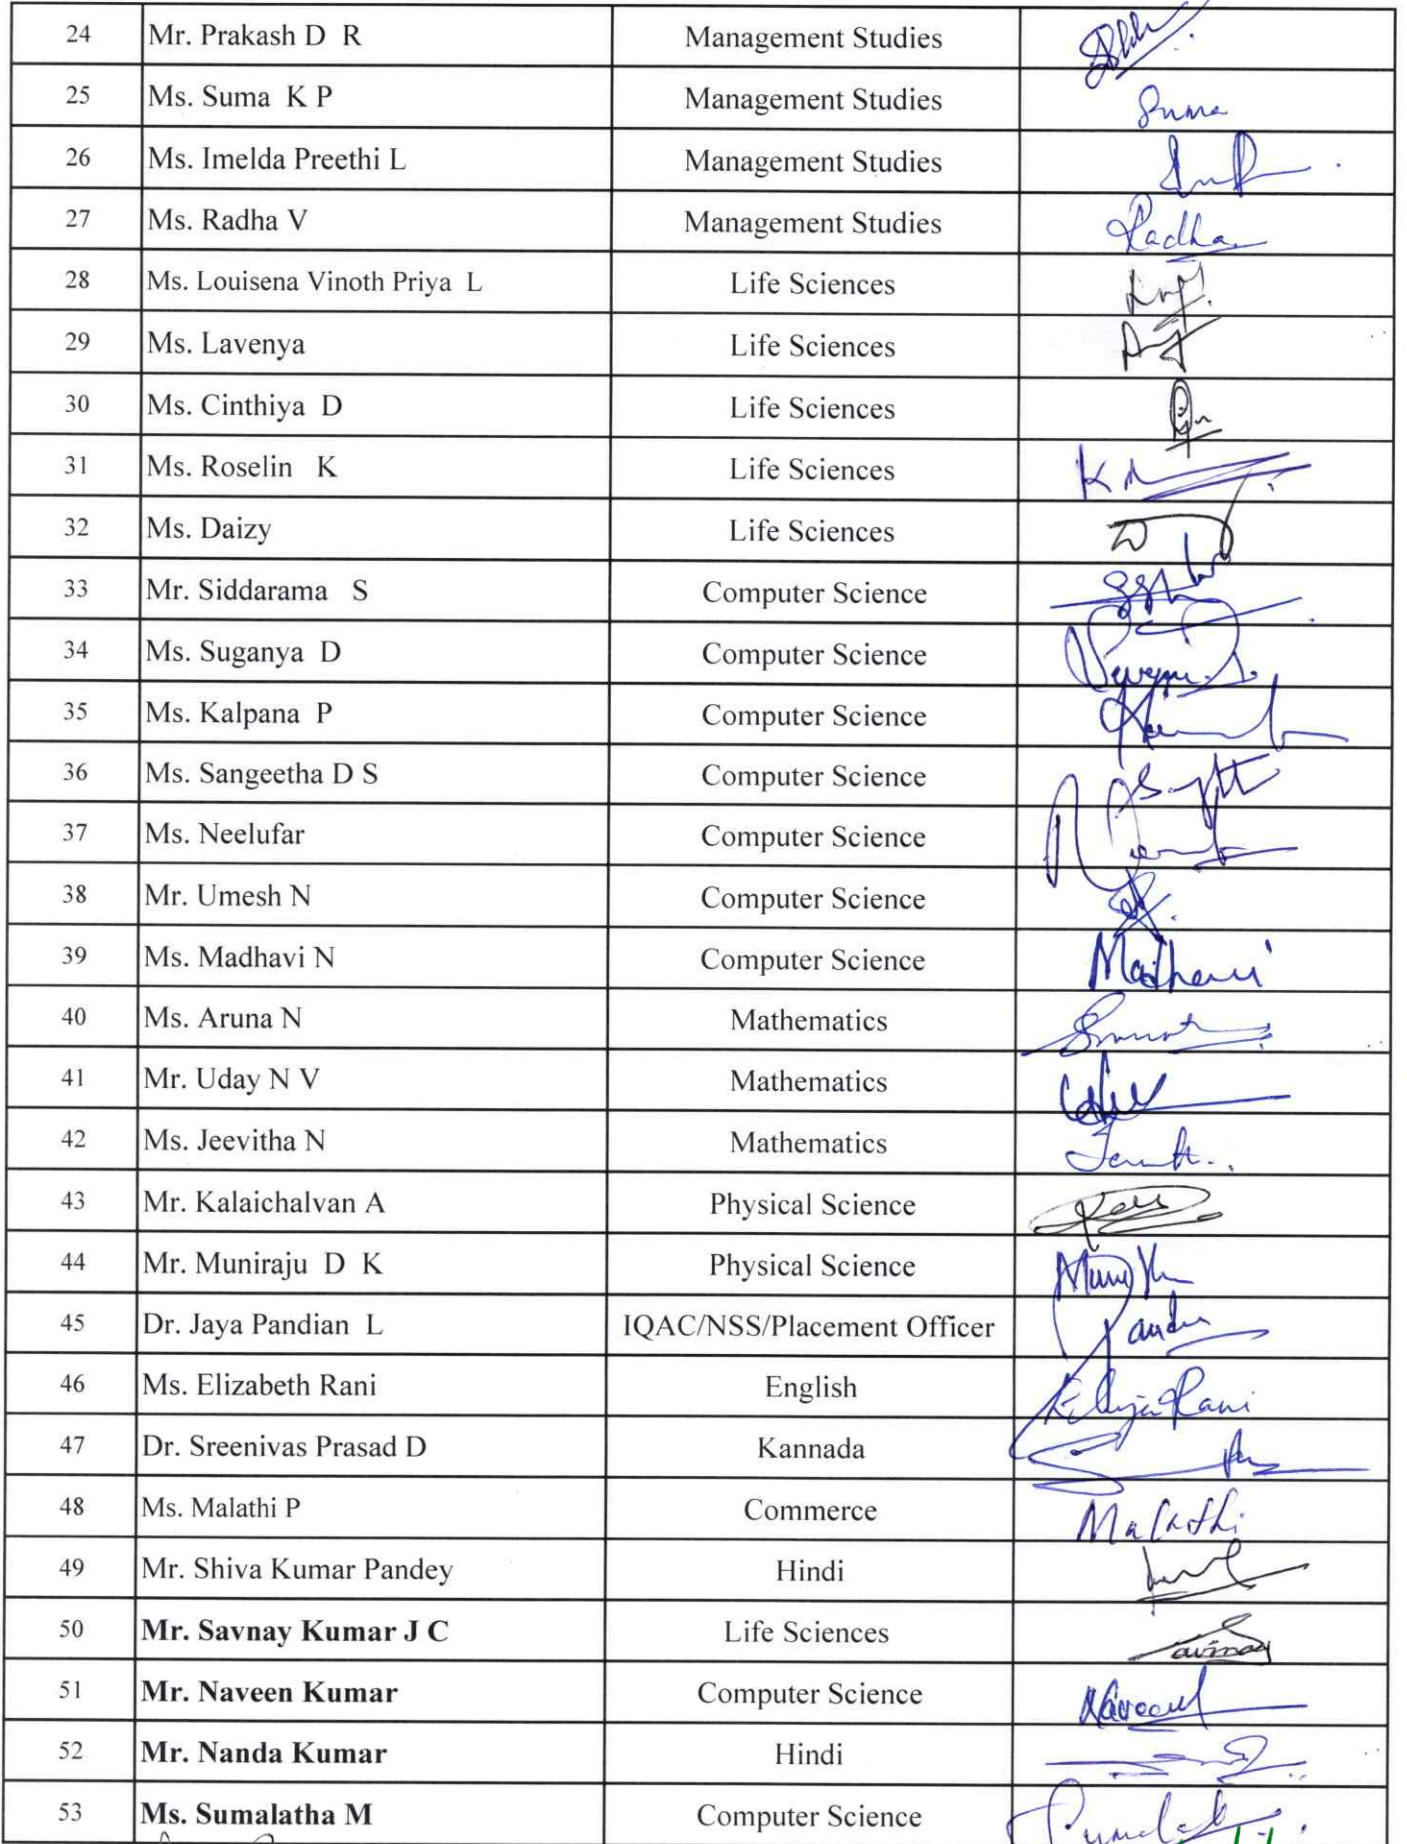 24 Mr. Prakash D R Management Studies
25 Ms. Suma K P Management Studies Suma
26 Ms. Imelda Preethi L Management Studies
27 Ms. Radha V Management Studies Radha
28 Ms. Louisena Vinoth Priya L Life Sciences
29 Ms. Lavenya Life Sciences
30 Ms. Cinthiya D Life Sciences
31 Ms. Roselin K Life Sciences
32 Ms. Daizy Life Sciences
33 Mr. Siddarama S Computer Science
34 Ms. Suganya D Computer Science
35 Ms. Kalpana P Computer Science
36 Ms. Sangeetha D S Computer Science
37 Ms. Neelufar Computer Science
38 Mr. Umesh N Computer Science
39 Ms. Madhavi N Computer Science Madhavi
40 Ms. Aruna N Mathematics
41 Mr. Uday N V Mathematics
42 Ms. Jeevitha N Mathematics
43 Mr. Kalaichalvan A Physical Science
44 Mr. Muniraju D K Physical Science
45 Dr. Jaya Pandian L IQAC/NSS/Placement Officer
46 Ms. Elizabeth Rani English
47 Dr. Sreenivas Prasad D Kannada
48 Ms. Malathi P Commerce Malathi
49 Mr. Shiva Kumar Pandey Hindi
50 Mr. Savnay Kumar J C Life Sciences
51 Mr. Naveen Kumar Computer Science
52 Mr. Nanda Kumar Hindi
53 Ms. Sumalatha M Computer Science